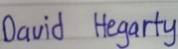 David Hegarty